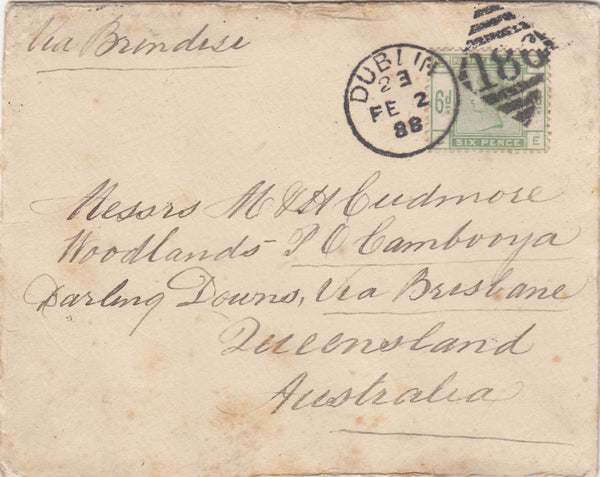 Via Brindese
DUBLIN
2
FE 2
88
186
6d
SIX PENCE
E
Messrs M & H Cudmore
Woodlands P O Cambooya
Darling Downs, Via Brisbane
Queensland
Australia